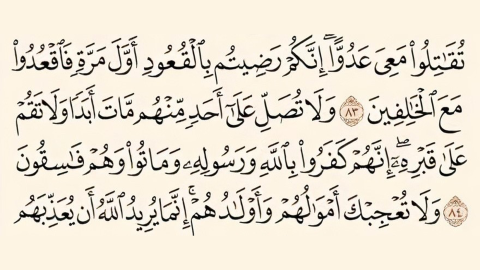 تُقَٰتِلُوا۟ مَعِىَ عَدُوًّا ۖ إِنَّكُمْ رَضِيتُم بِٱلْقُعُودِ أَوَّلَ مَرَّةٍ فَٱقْعُدُوا۟
مَعَ ٱلْخَٰلِفِينَ ٨٣ وَلَا تُصَلِّ عَلَىٰٓ أَحَدٍ مِّنْهُم مَّاتَ أَبَدًا وَلَا تَقُمْ
عَلَىٰ قَبْرِهِۦٓ ۖ إِنَّهُمْ كَفَرُوا۟ بِٱللَّهِ وَرَسُولِهِۦ وَمَاتُوا۟ وَهُمْ فَٰسِقُونَ
٨٤ وَلَا تُعْجِبْكَ أَمْوَٰلُهُمْ وَأَوْلَٰدُهُمْ ۚ إِنَّمَا يُرِيدُ ٱللَّهُ أَن يُعَذِّبَهُم